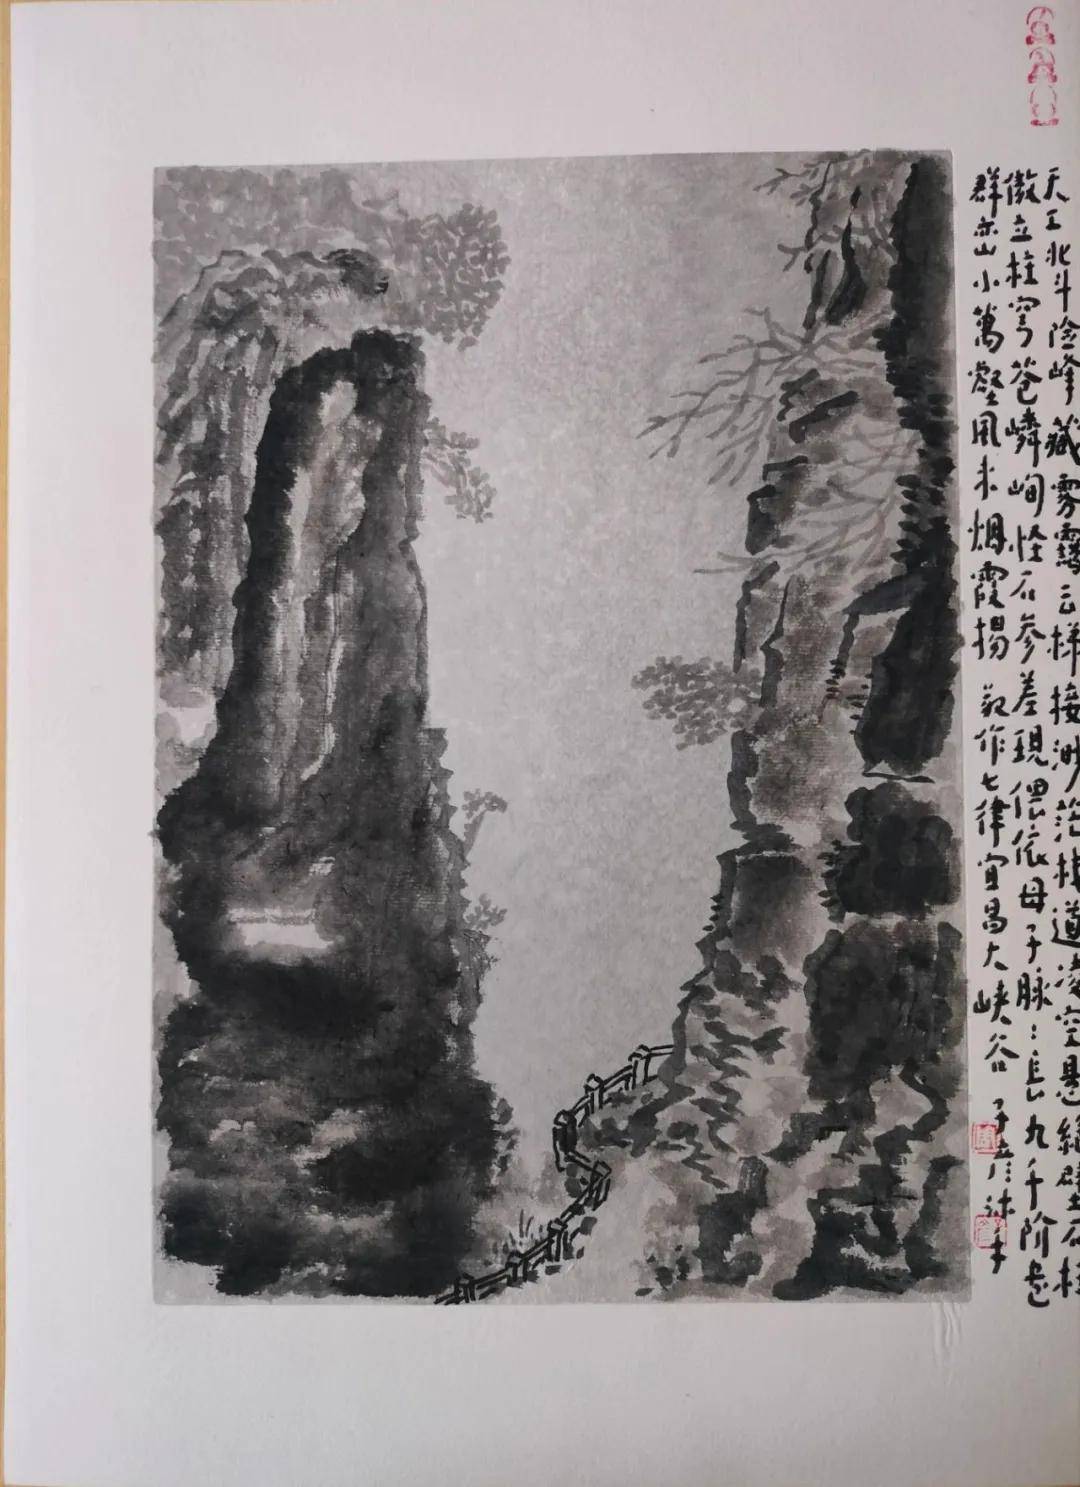 天工北斗险峰藏雾霭云梯接渺茫栈道凌空悬绝壁石柱
傲立柱穹苍嶙峋怪石参差现偎依母子脉：長九千阶
群峦小萬壑風来烟霞揚 作七律宜昌大峡谷